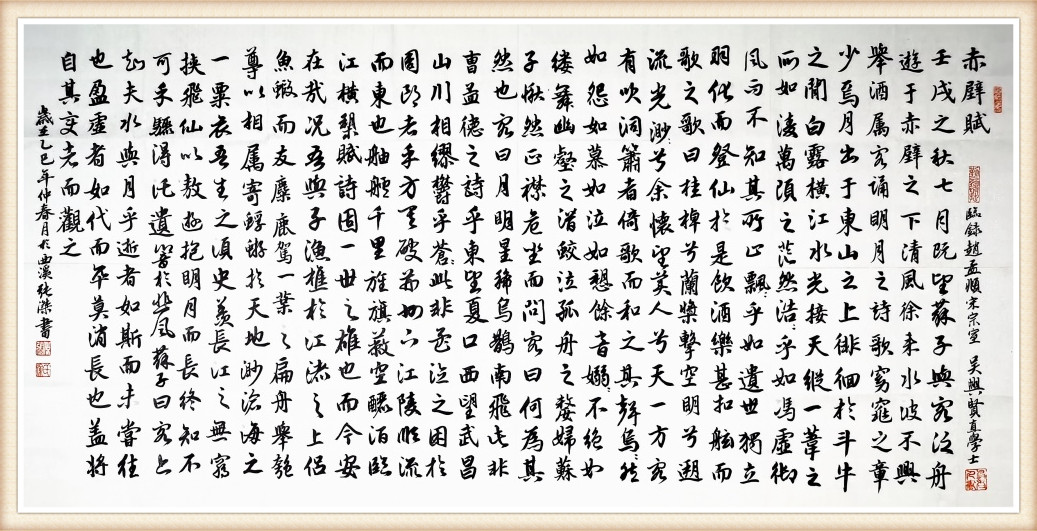 赤壁賦
臨錄趙孟頫宋宗室 吳興賢直學士
壬戌之秋七月既望蘇子與客泛舟
遊于赤壁之下清風徐来水波不興
舉酒属客誦明月之詩歌窈窕之章
少焉月出于東山之上徘徊於斗牛
之間白露横江水光接天縱一葦之
所如凌萬頃之茫然浩乎如馮虚御
風而不知其所止飄乎如遺世獨立
羽化而登仙於是飲酒樂甚扣舷而
歌之歌曰桂棹兮蘭槳擊空明兮遡
流光渺兮余懷望美人兮天一方客
有吹洞簫者倚歌而和之其聲嗚〻然
如怨如慕如泣如愬餘音嫋〻不絶如
縷舞幽壑之潜蛟泣孤舟之嫠婦蘇
子愀然正襟危坐而問客曰何為其
然也客曰月明星稀烏鵲南飛此非
曹孟德之詩乎東望夏口西望武昌
山川相繆鬱乎蒼〻此非孟德之困於
周郎者乎方其破荆州下江陵順流
而東也舳艫千里旌旗蔽空釃酒臨
江横槊賦詩固一世之雄也而今安
在哉況吾與子漁樵於江渚之上侣
魚蝦而友麋鹿駕一葉之扁舟舉匏
尊以相属寄蜉蝣於天地渺滄海之
一粟哀吾生之須臾羨長江之無窮
挟飛仙以敖遊抱明月而長終知不
可乎驟得託遺響於悲風蘇子曰客亦
知夫水與月乎逝者如斯而未嘗往
也盈虚者如代而卒莫消長也盖將
自其变者而觀之
歲在乙巳年仲春月於曲溪純書